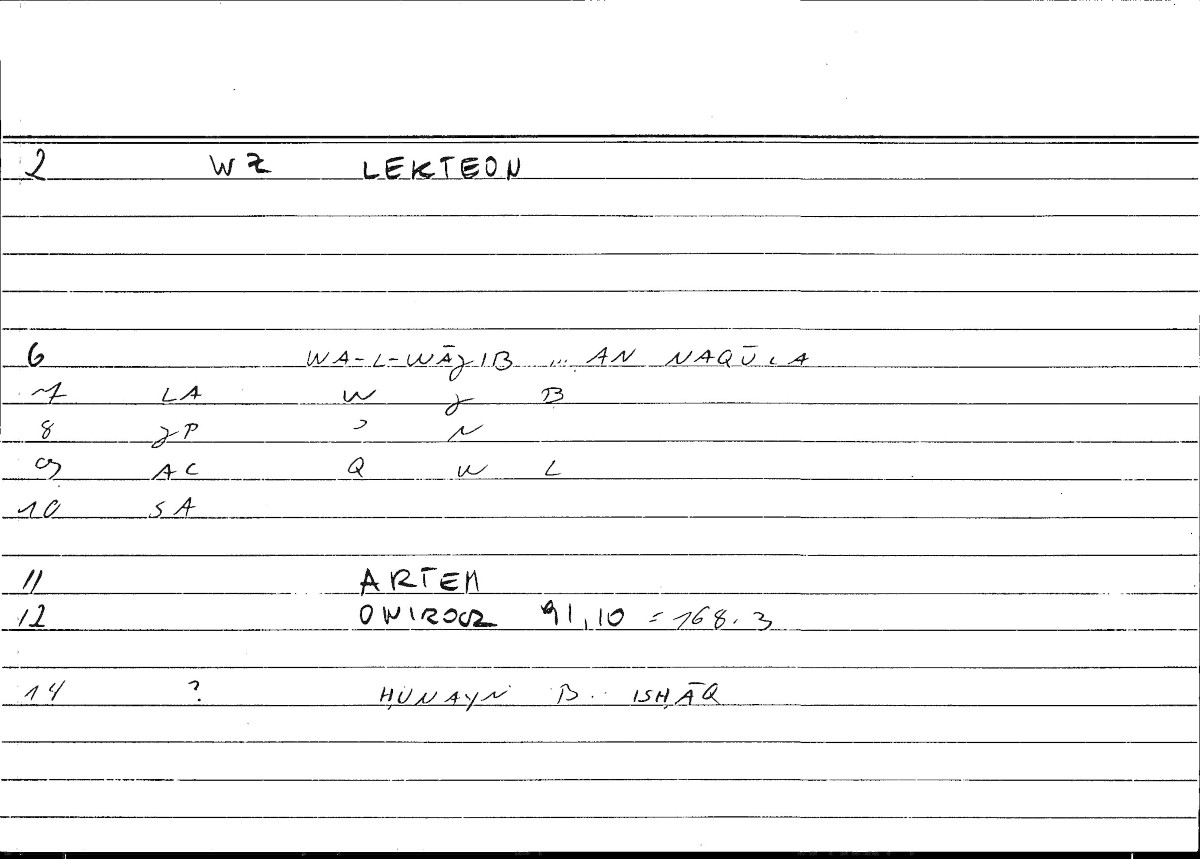 2 WZ LEKTEON
6 WA-L-WĀJIB ... AN NAQŪLA
7 LA W J B
8 JP ʾ N
9 AC Q W L
10 SA
11 ARTEM
12 ONIROCR 91,10 = 168.3
14 ? ḤUNAYN B. ISḤĀQ